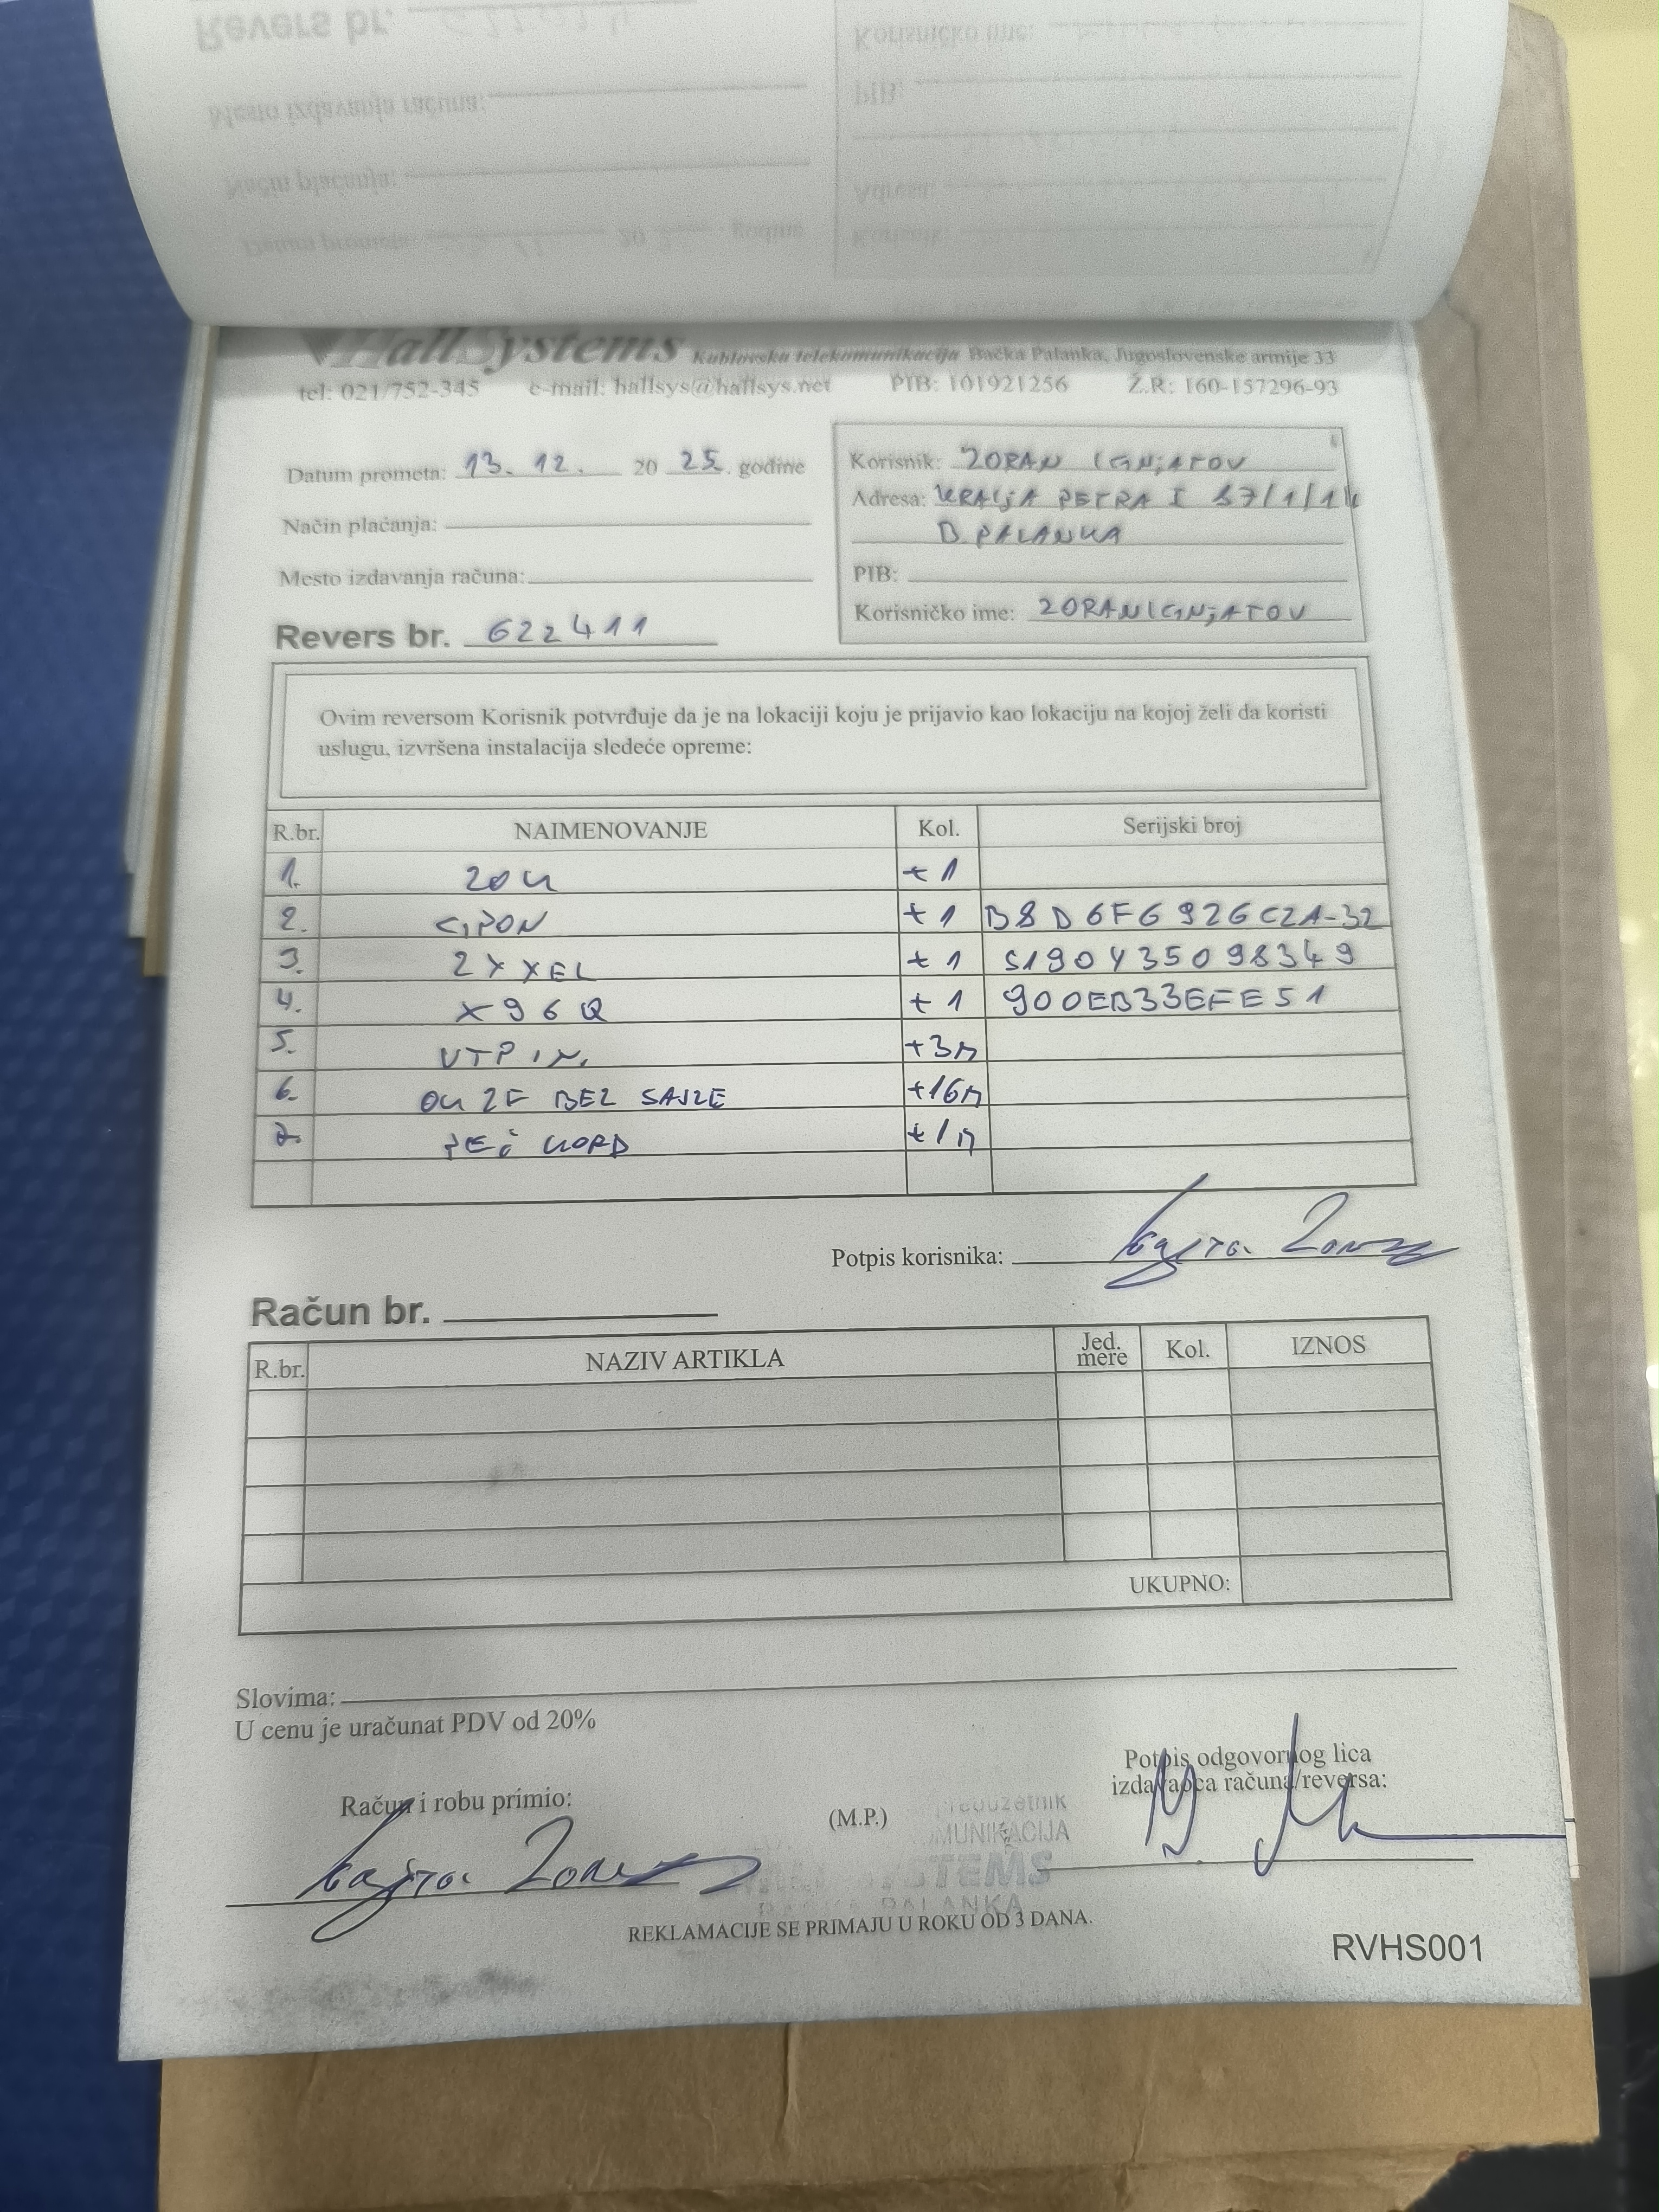 HallSystems Kablovska telekomunikacija Bačka Palanka, Jugoslovenske armije 33
tel: 021/752-345 e-mail: hallsys@hallsys.net PIB: 101921256 Ž.R: 160-157296-93
Datum prometa: 13. 12. 20 25. godine
Način plaćanja:
Mesto izdavanja računa:
Revers br. 622411
Korisnik: ZORAN IGNjATOV
Adresa: KRALjA PETRA I
B. PALANKA
PIB:
Korisničko ime: ZORANIGNjATOV
Ovim reversom Korisnik potvrđuje da je na lokaciji koju je prijavio kao lokaciju na kojoj želi da koristi
uslugu, izvršena instalacija sledeće opreme:
R.br. NAIMENOVANJE Kol. Serijski broj
1. ZOK +1
2. GPON +1 B8D6F6926C2A-32
3. ZYXEL +1 S190Y35098349
4. X96Q +1 900EB33EFE51
5. UTP IN. +3m
6. OK 2F BEZ SAJZE +16m
7. PEČ KORD +1m
Potpis korisnika:
Račun br.
R.br. NAZIV ARTIKLA Jed. mere Kol. IZNOS
UKUPNO:
Slovima:
U cenu je uračunat PDV od 20%
Račun i robu primio:
(M.P.)
Potpis odgovornog lica
izdavaoca računa/reversa:
REKLAMACIJE SE PRIMAJU U ROKU OD 3 DANA.
RVHS001